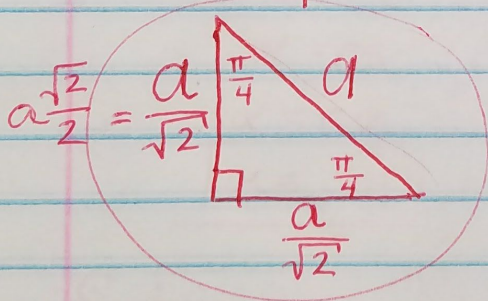 a√2/2 = a/√2
π/4
a
π/4
a/√2